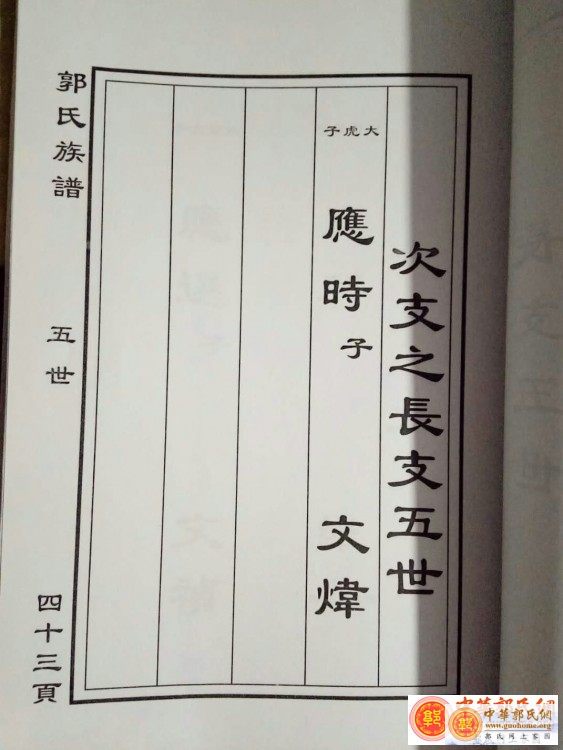 次支之長支五世
大虎子
應時子 文煒
郭氏族譜
五世
四十三頁
中華郭氏網
中華郭氏網
www.guohome.org
郭氏网上家园